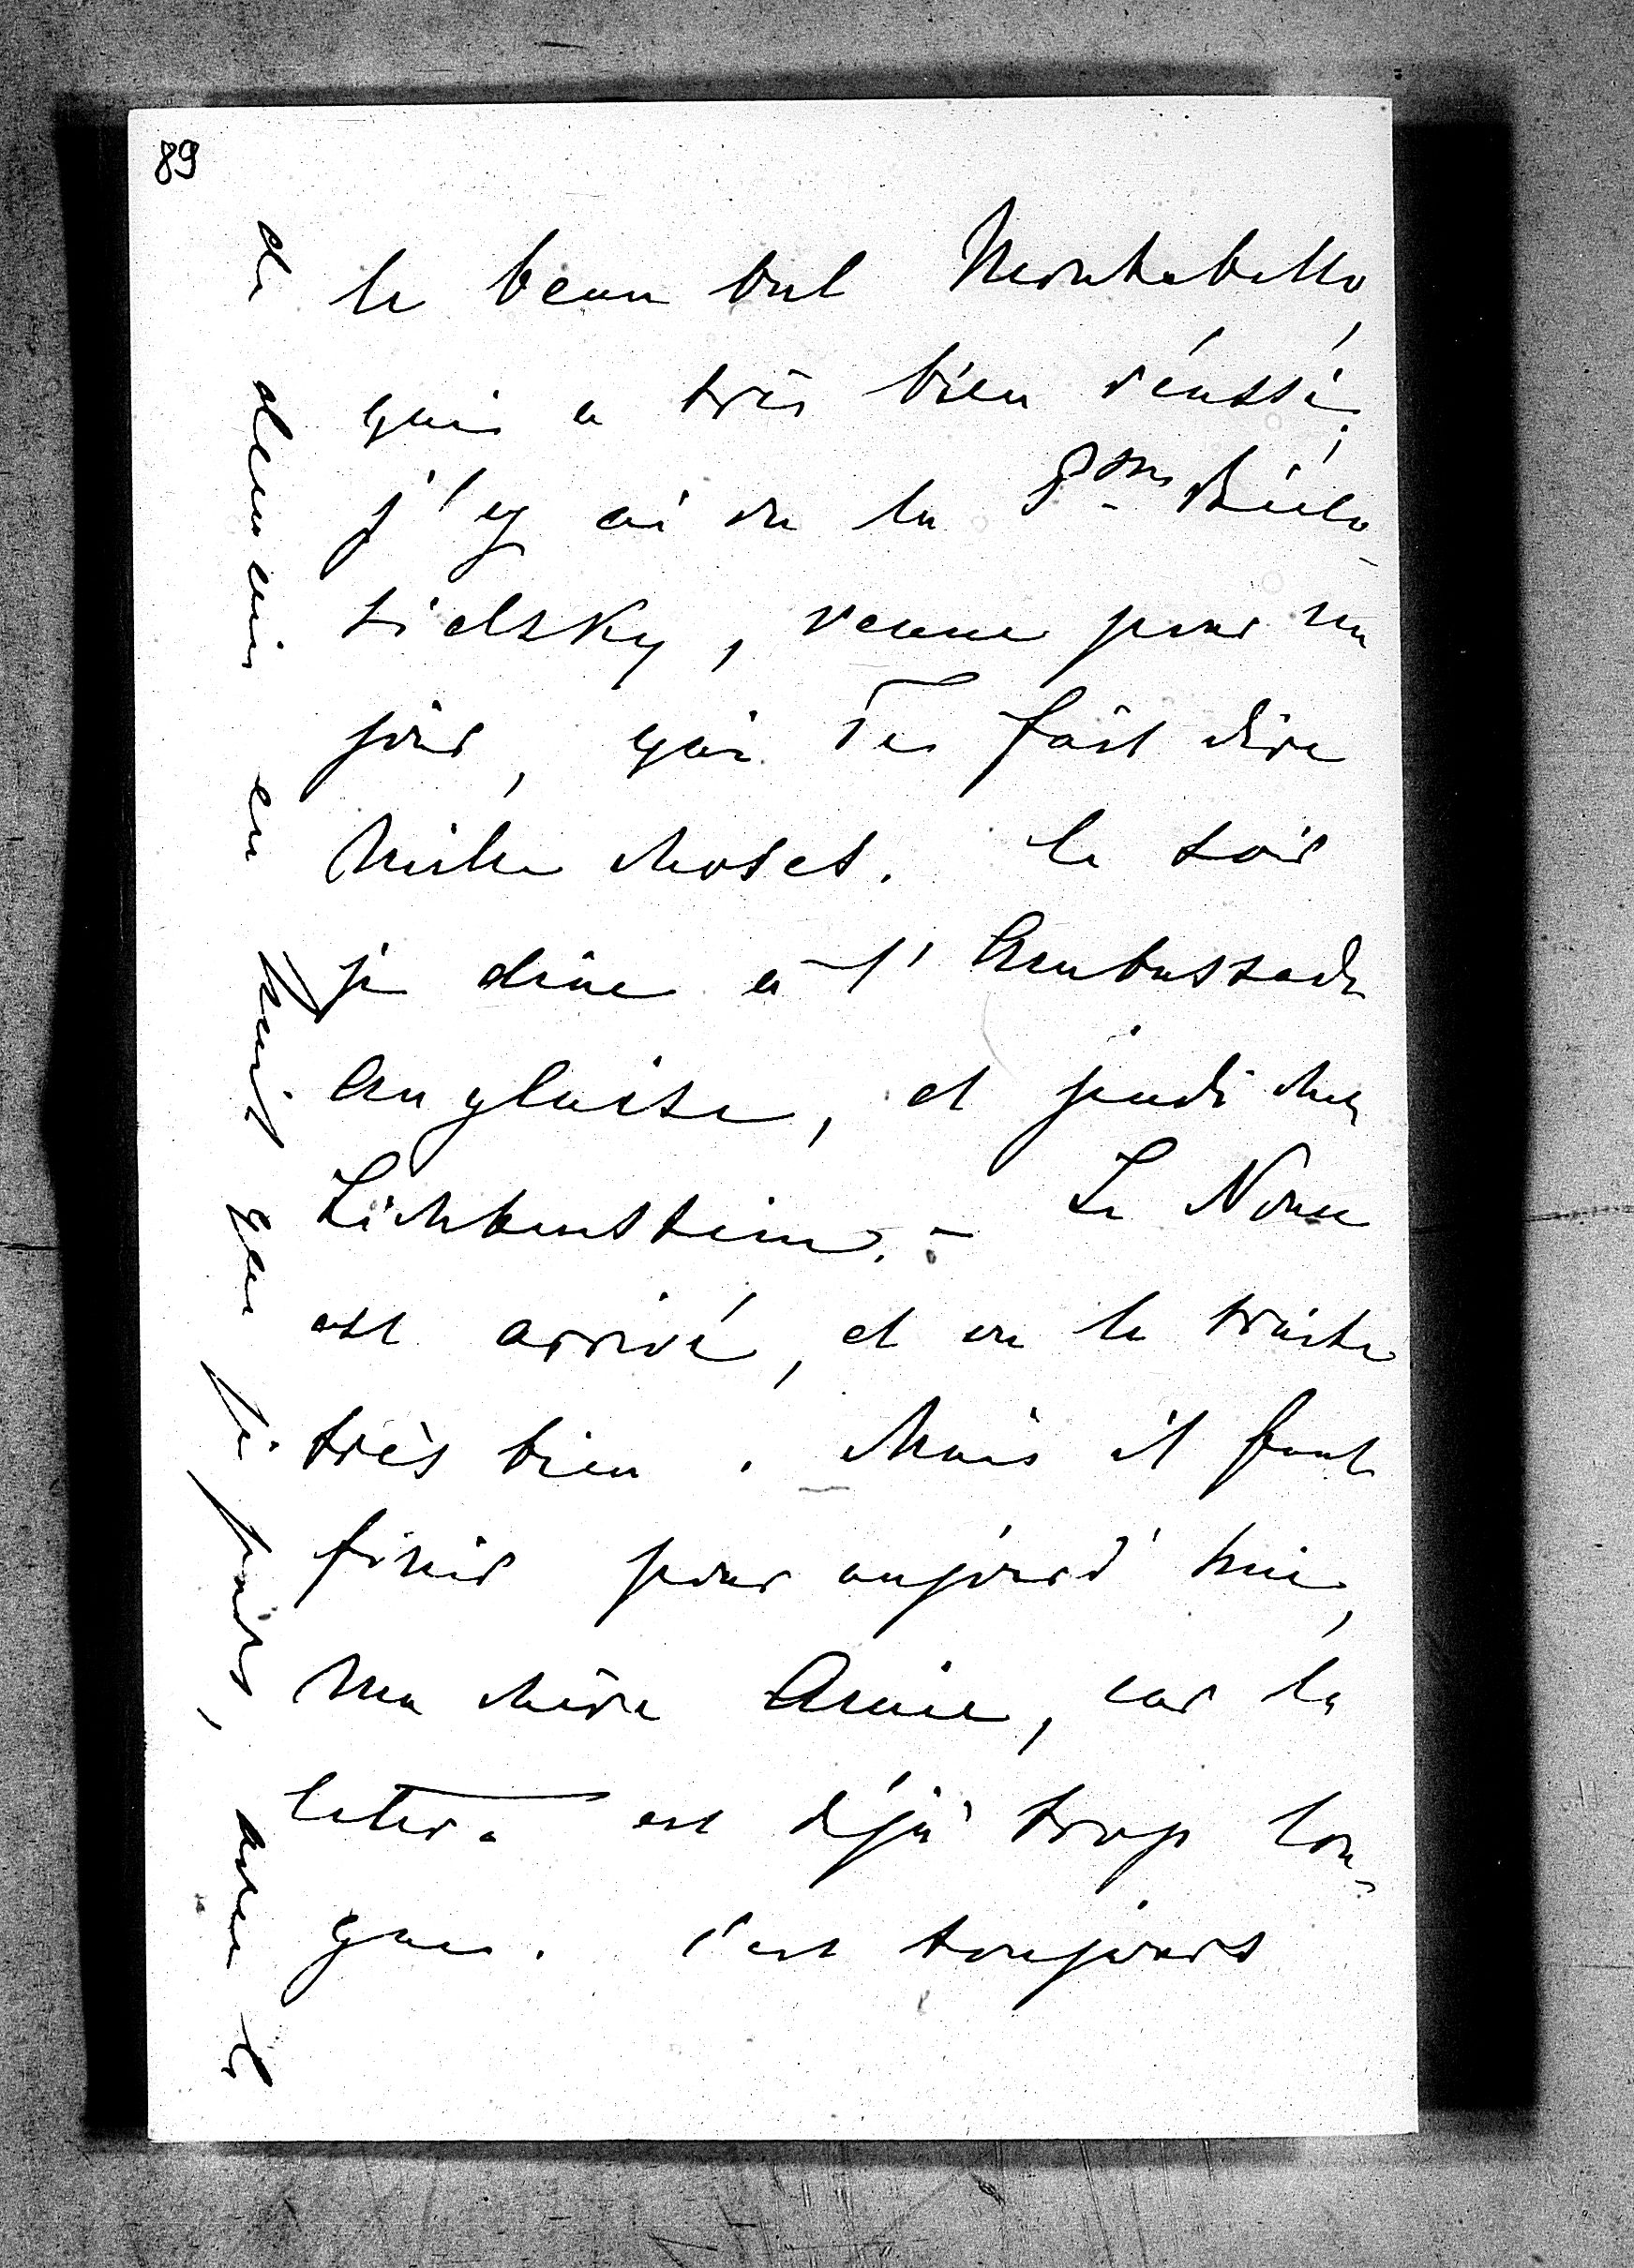 89
le beau bal Montebello,
qui a très bien réussi;
j'y ai vu la Psse Biélo-
sielsky, venue pour un
jour, qui Te fait dire
mille choses. Ce soir
je dine à l'Ambassade
Anglaise, et jeudi chez
Lichtenstein. - Le Nonce
est arrivé, et on le traite
très bien. Mais il faut
finir pour aujourd'hui,
ma chère Amie, car la
lettre est déjà trop lon-
gue. C'est toujours
de demain en huit que je pars, avec le